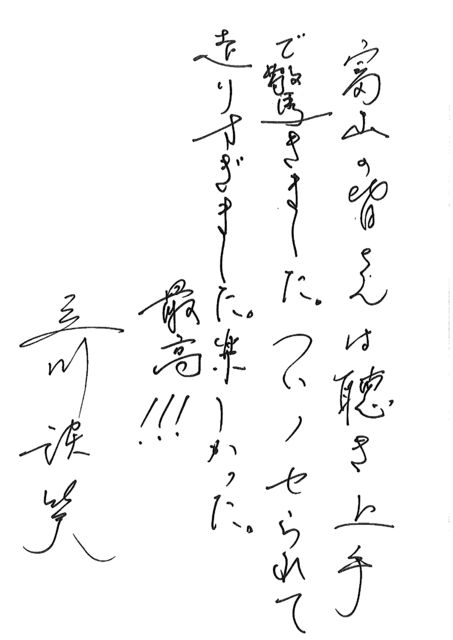 富山の皆さんは聴き上手
で驚きました。ついノせられて
走りすぎました。楽しかった。
最高!!!
立川談笑